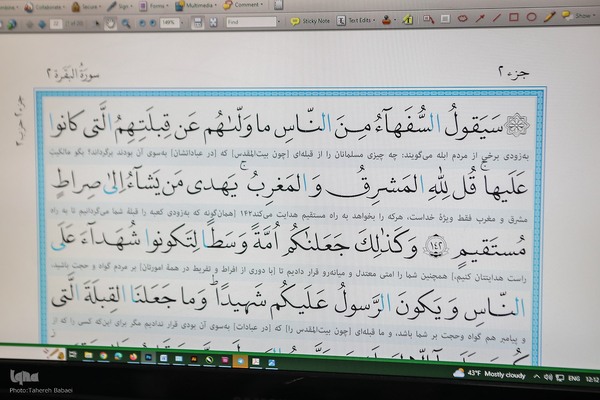 Collaborate
Secure
Sign
Forms
Multimedia
Comment
149%
Find
Sticky Note
Text Edits
Show
جزء ۲
سورة البقرة ۲
سَيَقُولُ السُّفَهَآءُ مِنَ النّاسِ ما وَلّىٰهُم عَن قِبلَتِهِمُ الَّتى كانوا
به‌زودی برخی از مردم ابله می‌گویند: چه چیزی مسلمانان را از قبله‌ای [چون بیت‌المقدس] که [در عباداتشان] به‌سوی آن بودند برگرداند؟ بگو مالکیت
عَلَيها ۚ قُل لِلّٰهِ المَشرِقُ وَ المَغرِبُ ۚ يَهدى مَن يَشآءُ إِلىٰ صِراطٍ
مشرق و مغرب فقط ویژهٔ خداست، هرکه را بخواهد به راه مستقیم هدایت می‌کند۱۴۲ [همان‌گونه که به‌زودی کعبه را قبلهٔ شما می‌گردانیم تا به راه
مُستَقيمٍ ﴿١٤٢﴾ وَ كَذٰلِكَ جَعَلنٰكُم أُمَّةً وَسَطًا لِتَكونوا شُهَدآءَ عَلَى
راست هدایتتان کنیم،] همچنین شما را امتی معتدل و میانه‌رو قرار دادیم تا [با دوری از افراط و تفریط در همهٔ امورتان] بر مردم گواه و حجت باشید،
النّاسِ وَ يَكونَ الرَّسولُ عَلَيكُم شَهيدًا ۗ وَ ما جَعَلنَا القِبلَةَ الَّتى
و پیامبر هم گواه وحجت بر شما باشد، و ما قبله‌ای [چون بیت‌المقدس را] که [در عبادات] به‌سوی آن بودی قرار ندادیم مگر برای این‌که کسی را که از
43°F Mostly cloudy
ENG
12:12
iqna
Photo:Tahereh Babaei